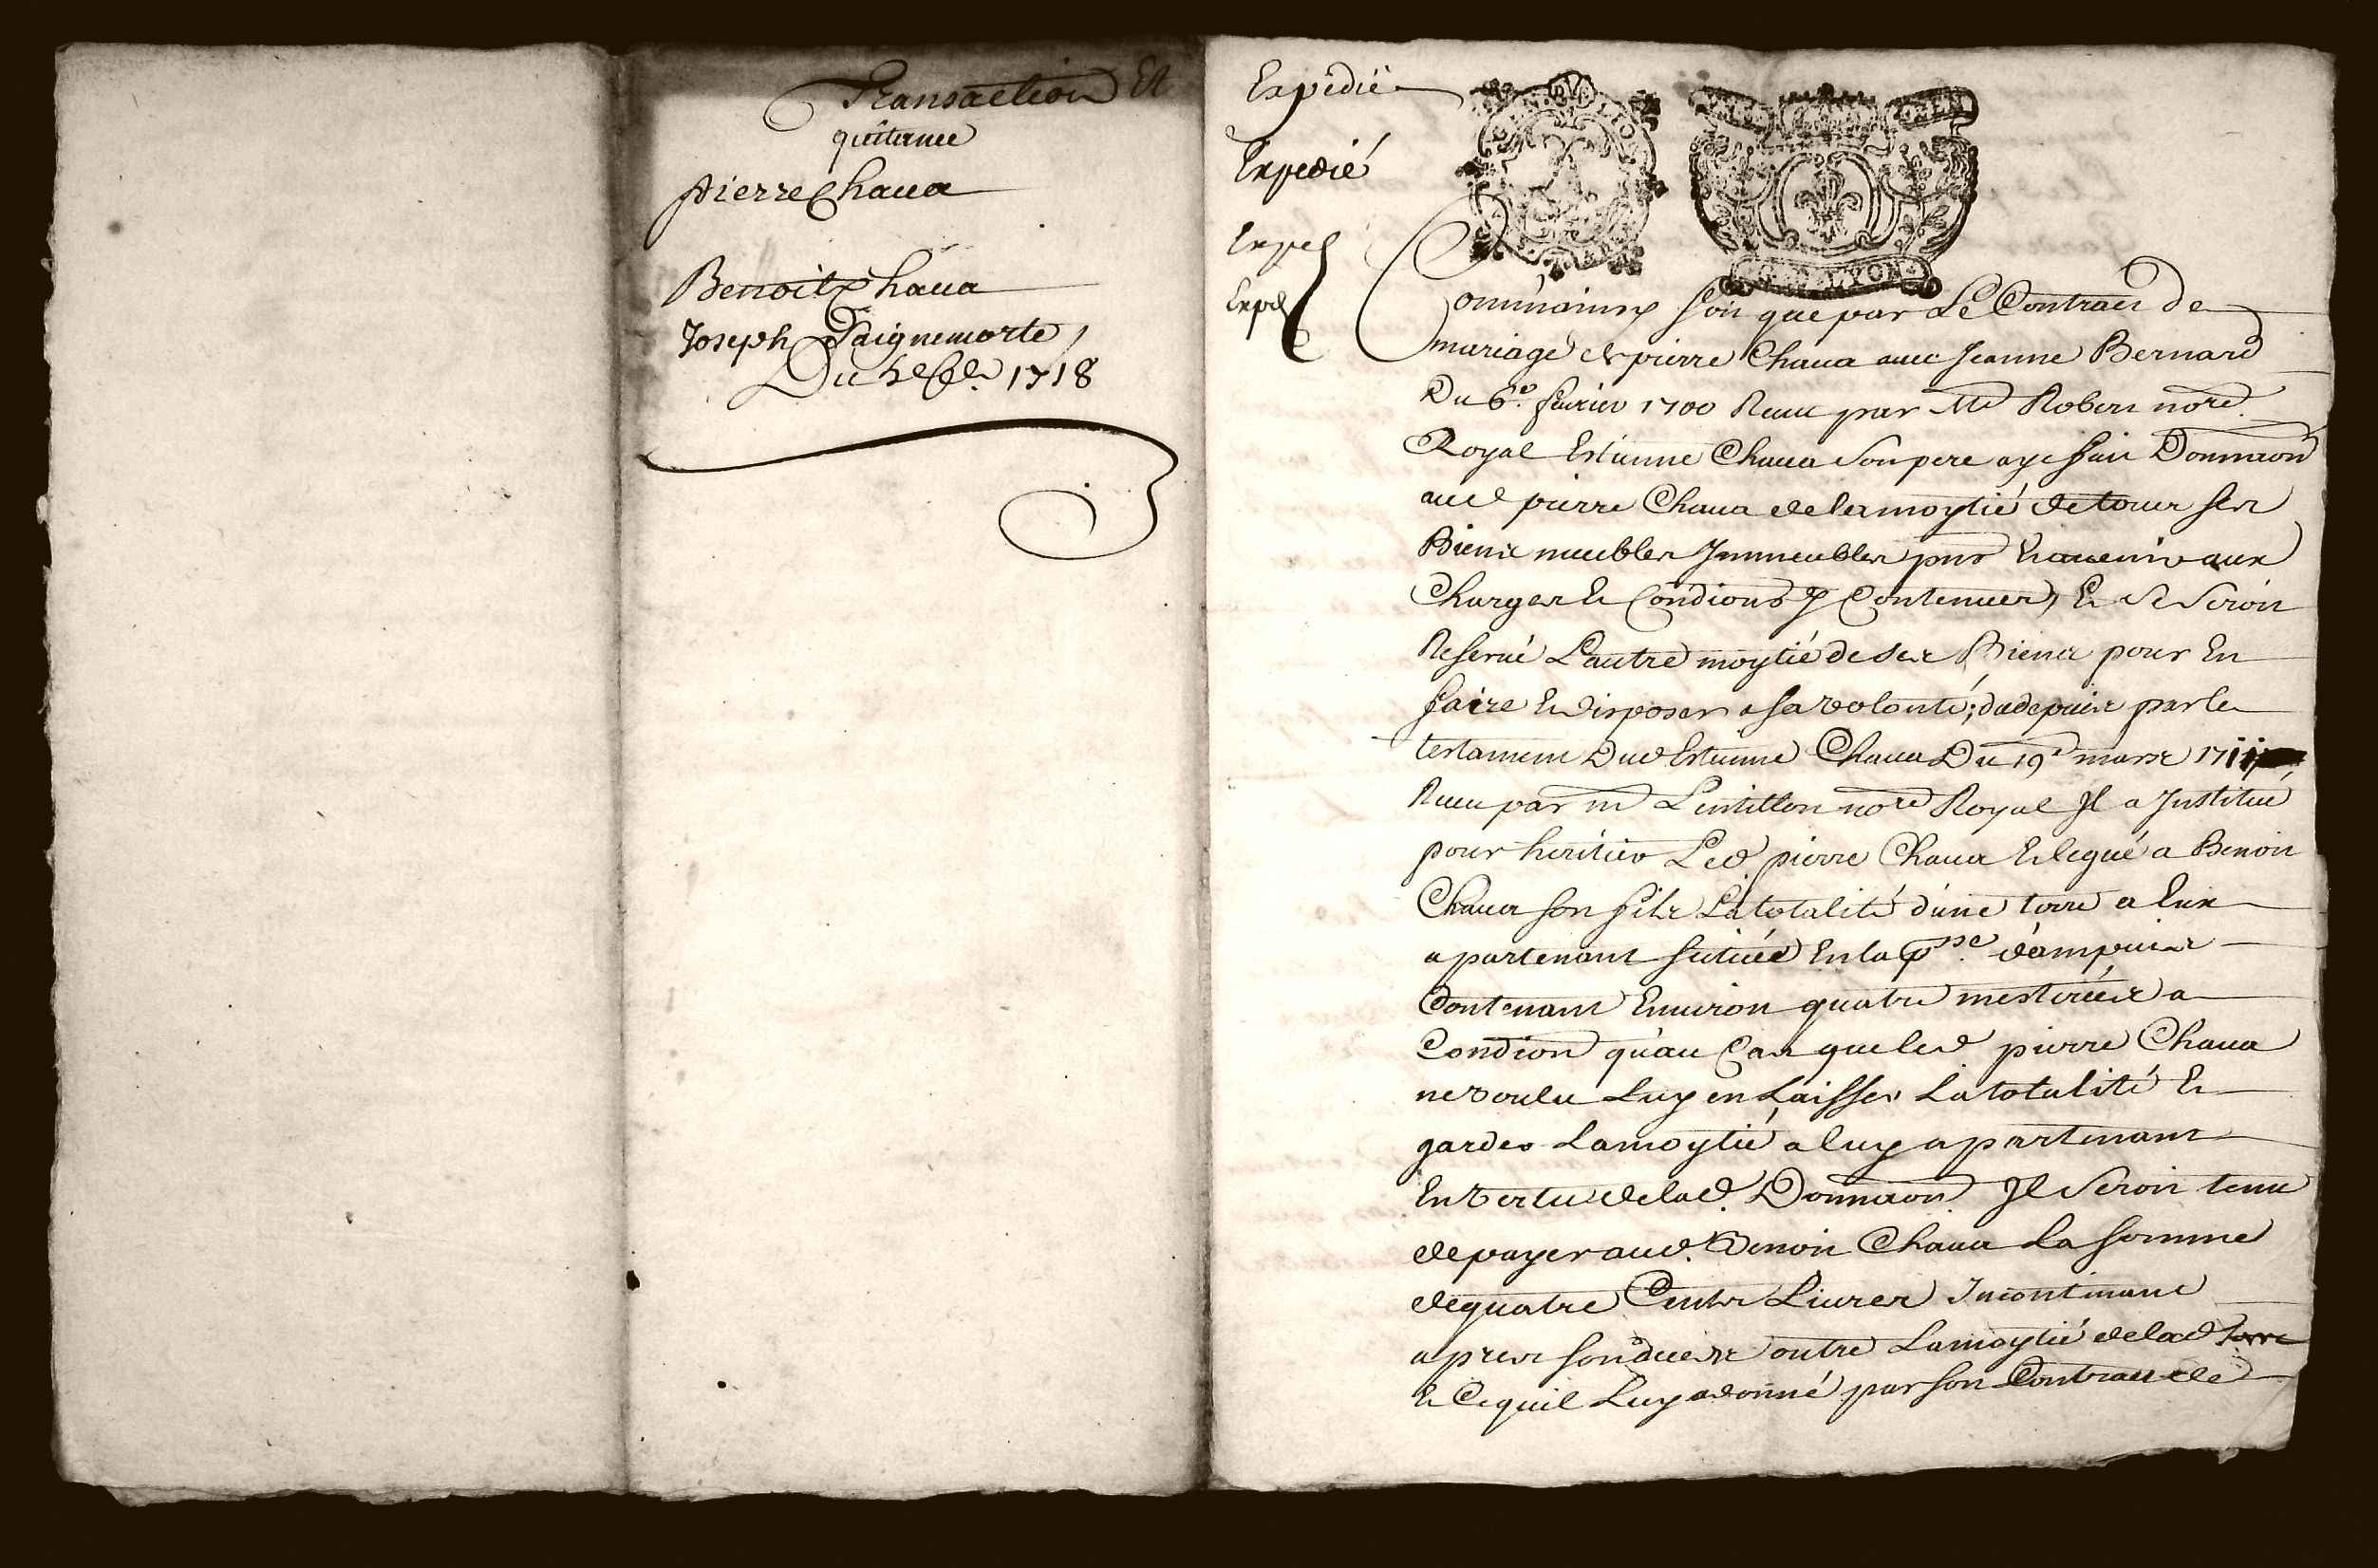 Transaction Et
quittance
pierre Chaua
Benoit Chaua
Joseph Daignemorte
Du 1718
Expedié
Expedié
Exped
Exped
LYON
Comme ainsy soit que par Le Contract de
mariage de pierre Chaua auec Jeanne Bernard
Du 6e. feurier 1700 Receu par Me Robert nore.
Royal Estienne Chaua son pere aye fait Donnaon
aud pierre Chaua de la moytié de tous ses
Biens meubles Immeubles pnts & auenir aux
Charges & Condions y Contenues, Et se seroit
Reserué L'autre moytié de ses Biens pour En
faire & disposer a sa volonté; depuis par le
testament Dud Estienne Chaua Du 19e mars 1711
Receu par me Lentillon nore Royal Il a Institué
pour heritier Led pierre Chaua & legué a Benoit
Chaua son fils La totalité d'une terre a Eux
apartenant scituée En la psse. d'ampuis
Contenant Enuiron quatre mesterées a
Condion qu'au Cas que led pierre Chaua
ne voulu Luy en Laisser La totalité Et
garder La moytié a luy apartenant
En vertu de lad. Donnaon Il seroit tenu
de payer aud. Benoit Chaua La somme
de quatre Cents Liures Incontinant
apres son deces outre La moytié de lad terre
& Ce quil Luy a donné par son Contract de